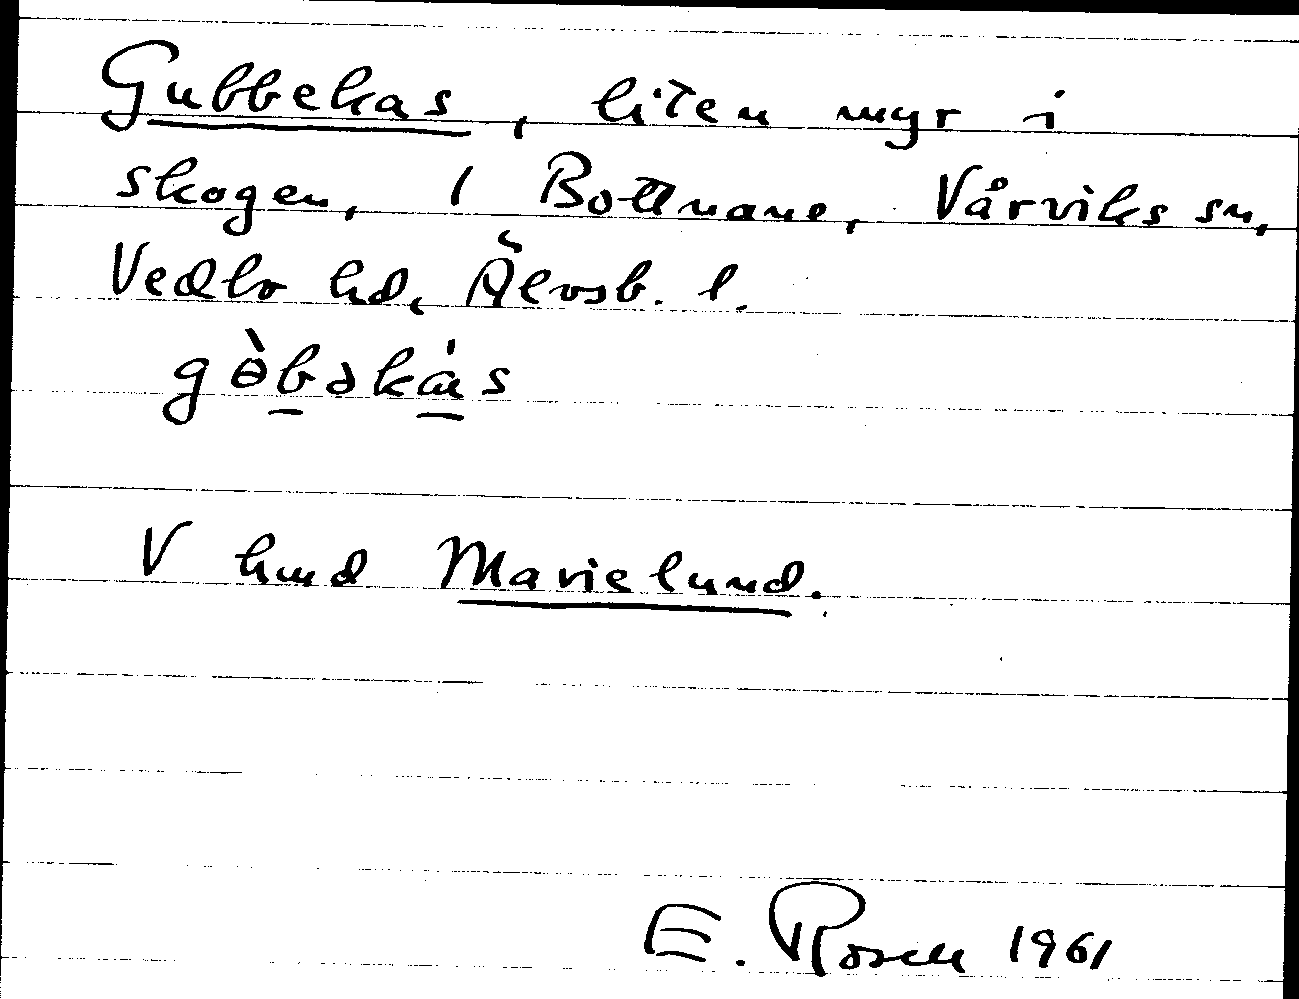 Gubbekas, liten myr i
skogen, 1 Bottnane, Vårviks sn,
Vedbo hd, Älvsb. l.
gɵ̀bəkás
V hmd Marielund.
E. Rosell 1961